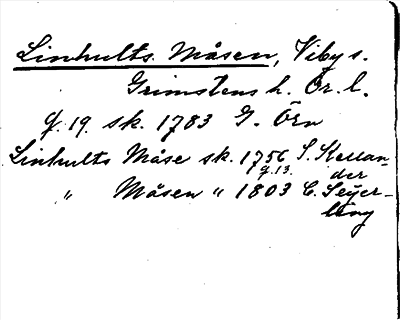 Linhults Måsen, Viby s.
Grimstens h. Ör. l.
q. 19. sk. 1783 G. Örn
Linhults Måse sk. 1756 S. Kellan-
q. 13. der
„ Måsen „ 1803 C. Seijer-
ling